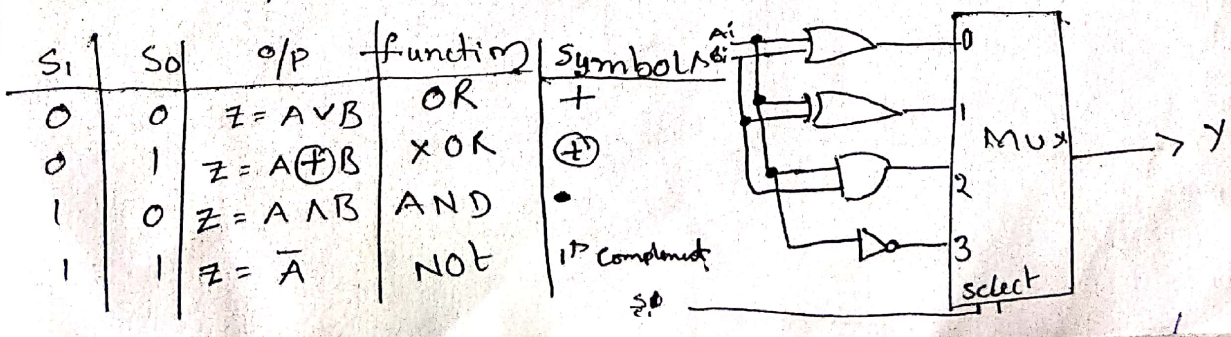 S1 S0 o/p function Symbols
0 0 Z = A∨B OR +
0 1 Z = A⊕B XOR ⊕
1 0 Z = A∧B AND •
1 1 Z = A̅ NOt 1's Complement
Ai
Bi
0
1
2
3
Mux
select
Y